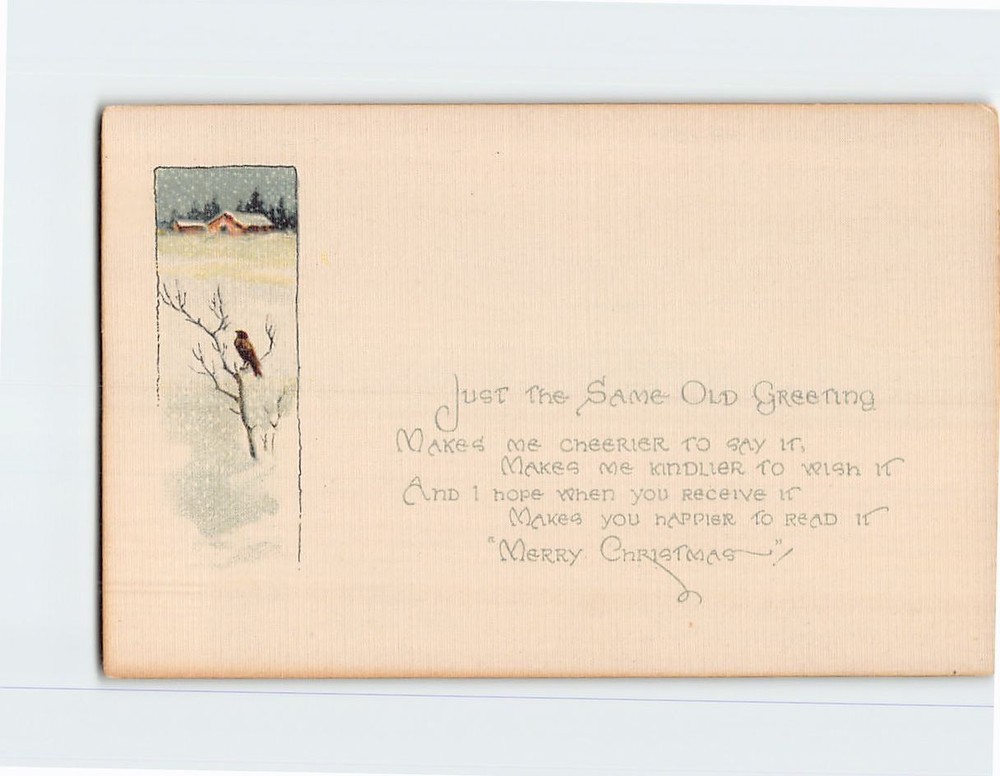 Just the Same Old Greeting
Makes me cheerier to say it,
Makes me kindlier to wish it
And I hope when you receive it
Makes you happier to read it
"Merry Christmas"